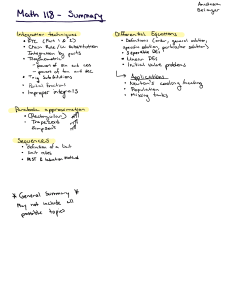 Math 118 - Summary
Andrew
Belanger
Integration techniques
• FTC (Part 1 & 2)
• Chain Rule / u substitution
Integration by parts
• Trigonometric
- powers of sin and cos
- powers of tan and sec
• Trig Substitution
• Partial Fractions
• Improper integrals
Parabolic approximation
• (Rectangular)
• Trapezoid
• Simpson's
Sequences
• Definition of a limit
• Limit rules
• MST & Induction Method
* General Summary *
May not include all
possible topics
Differential Equations
• Definitions (order, general solution,
specific solution, particular solution)
• Separable DEs
• Linear DEs
• Initial value problems
Applications
• Newton's cooling/heating
• Population
• Mixing tanks